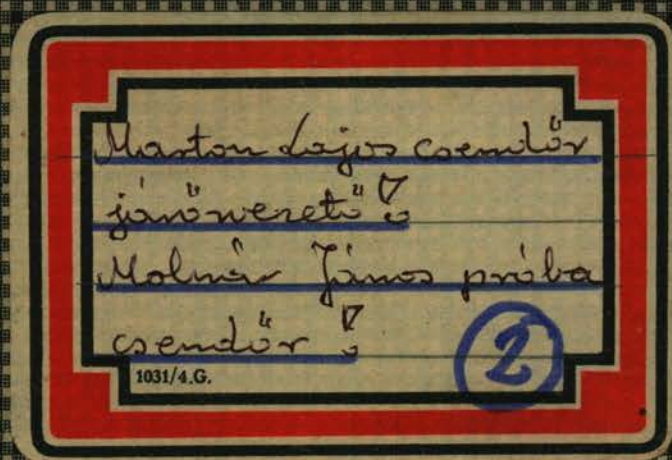 Marton Lajos csendőr
járőrvezető!
Molnár János próba
csendőr!
2
1031/4.G.